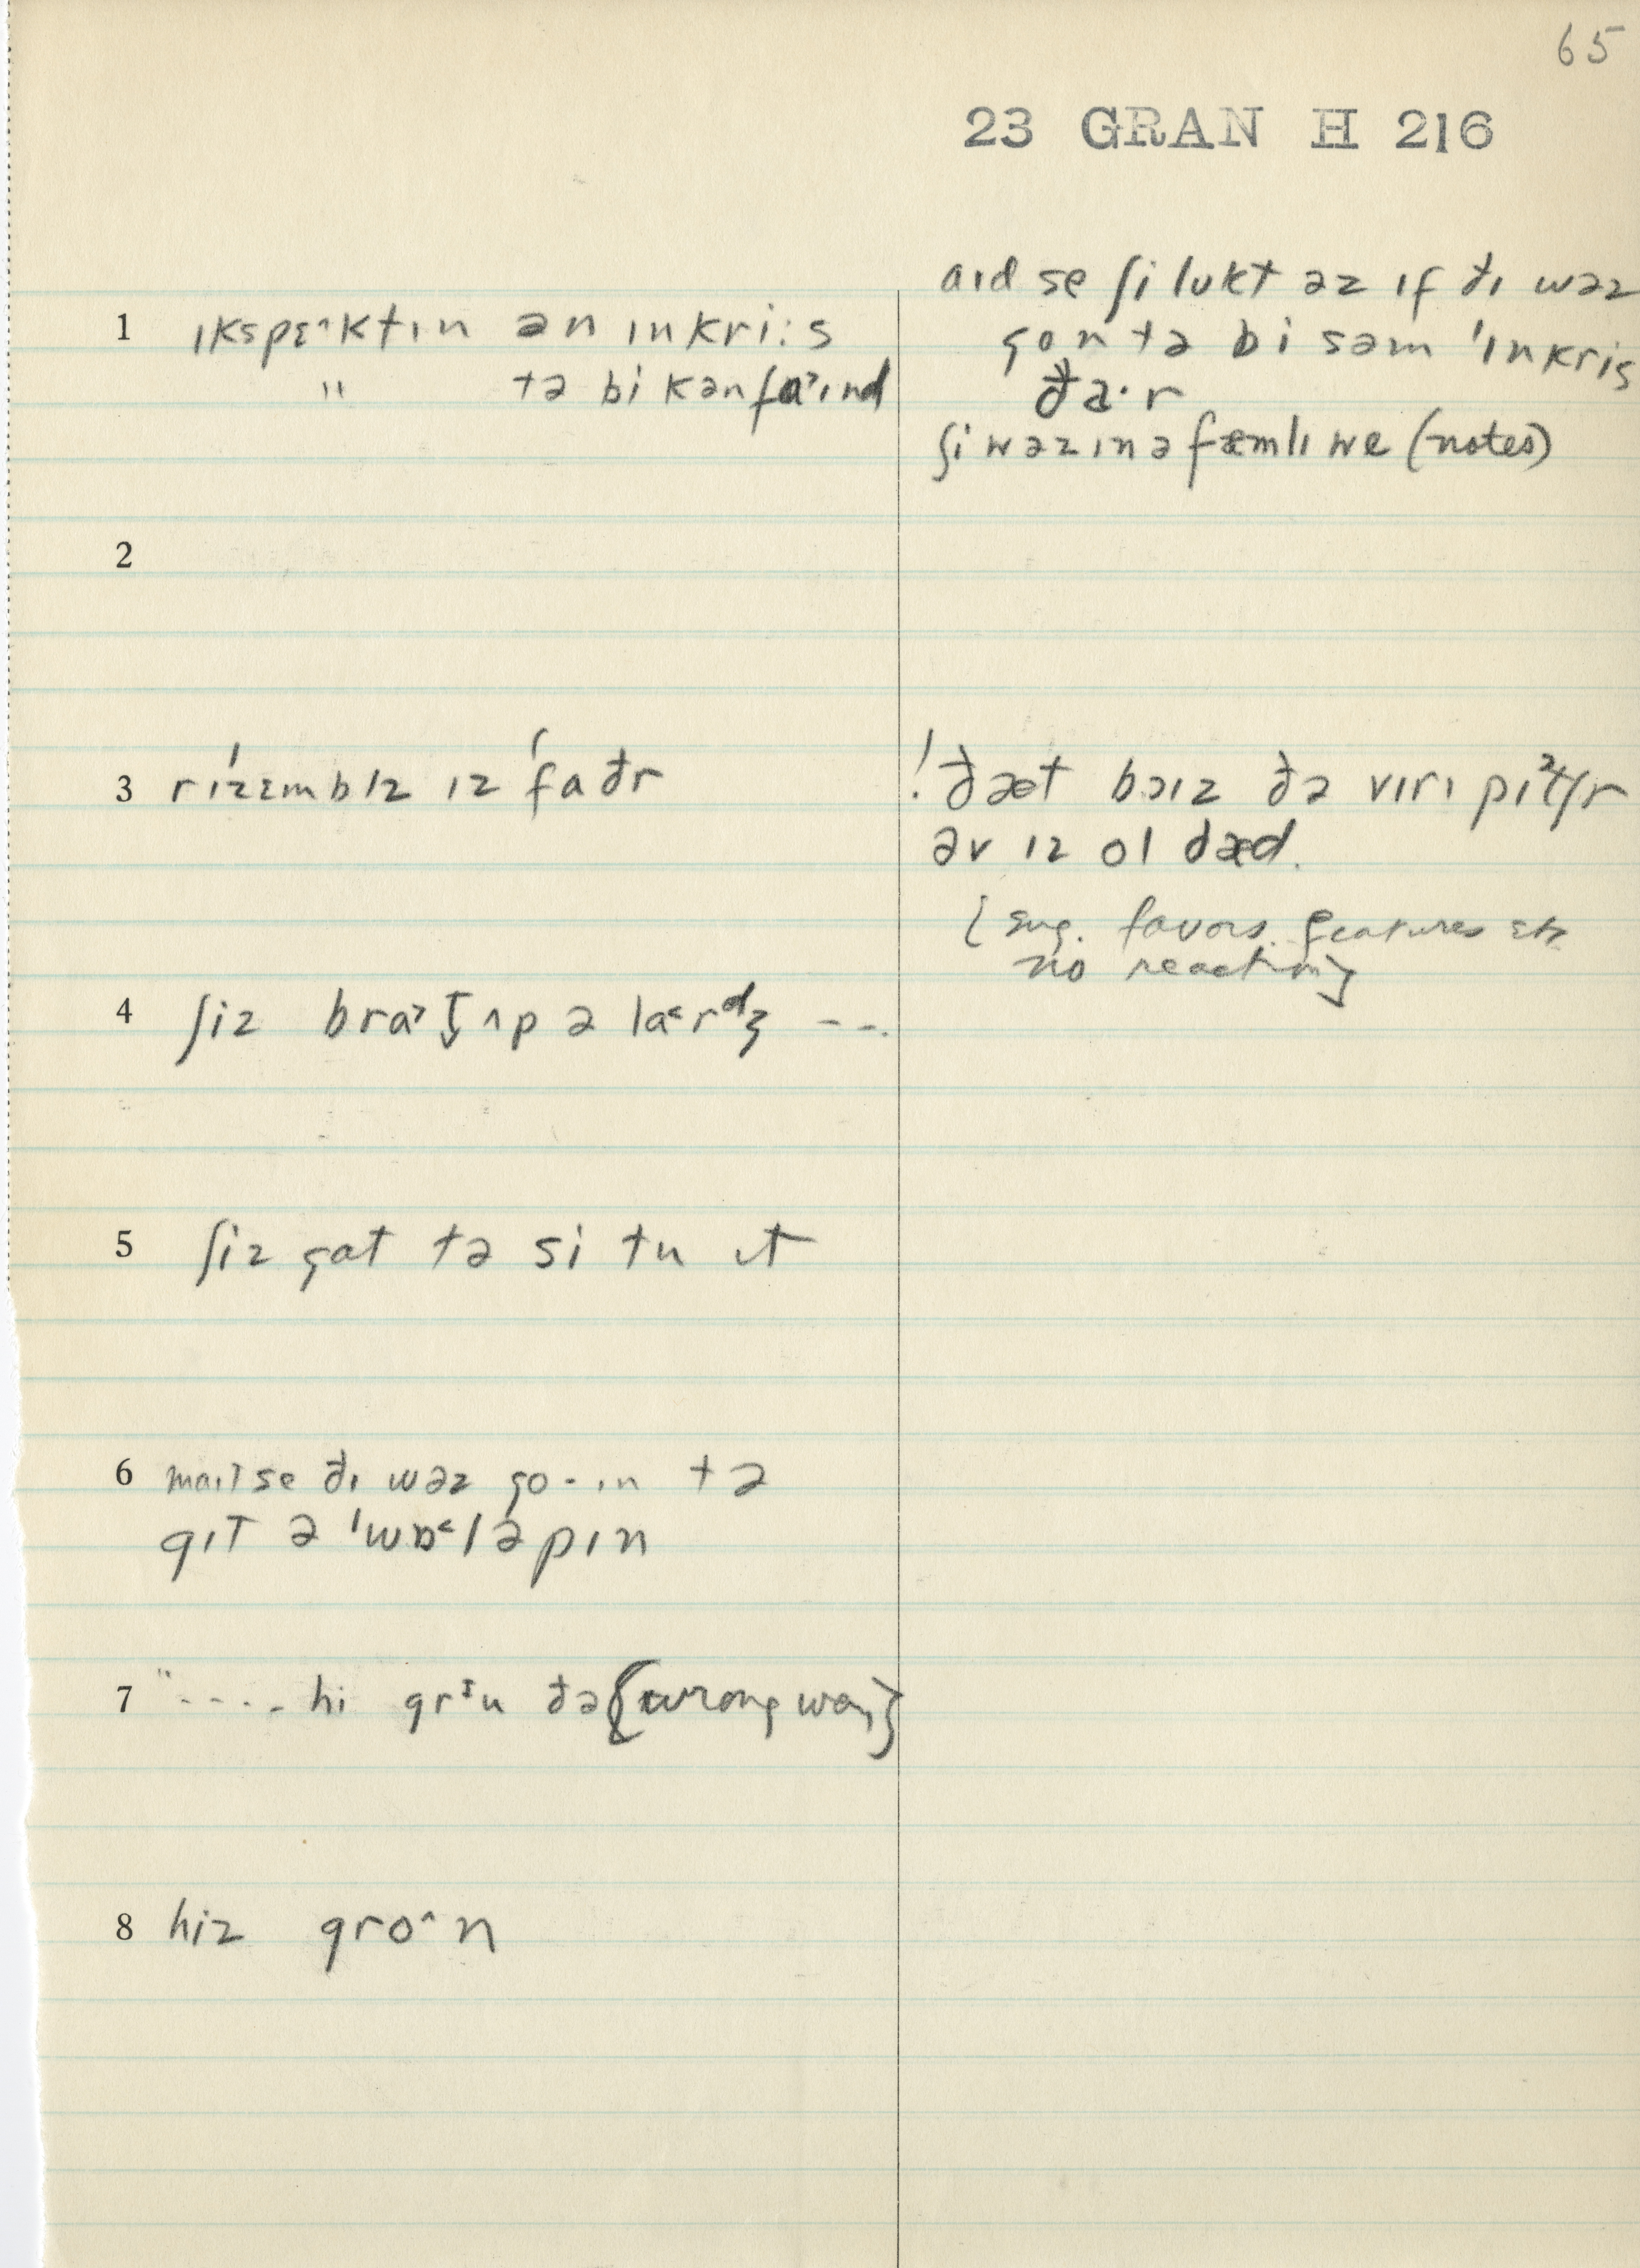 65
23 GRAN H 216
1 ɪkspɛ˄ktɪn ən ɪnkri:s
" tə bi kənfa˃ɪnd
aɪd se ʃi lʊkt əz ɪf ðɪ wəz
gon tə bi səm 'ɪnkris
ðə·r
ʃi wəz ɪn ə fæmlɪ we (notes)
2
3 rɪ'zɛmblz ɪz 'faðr
! ðæt bɔɪz ðə vɪrɪ
əv ɪz ol dæd.
[sug. favors. features etc
no reaction]
4 ʃiz ʌp ə ---
5 ʃiz gat tə si tu ɪt
6 se ðɪ wəz go-ɪn tə
gɪt ə 'wɒ˂ləpɪn
7 " ---- hi ðə {wrong way}
8 hiz gro˄n